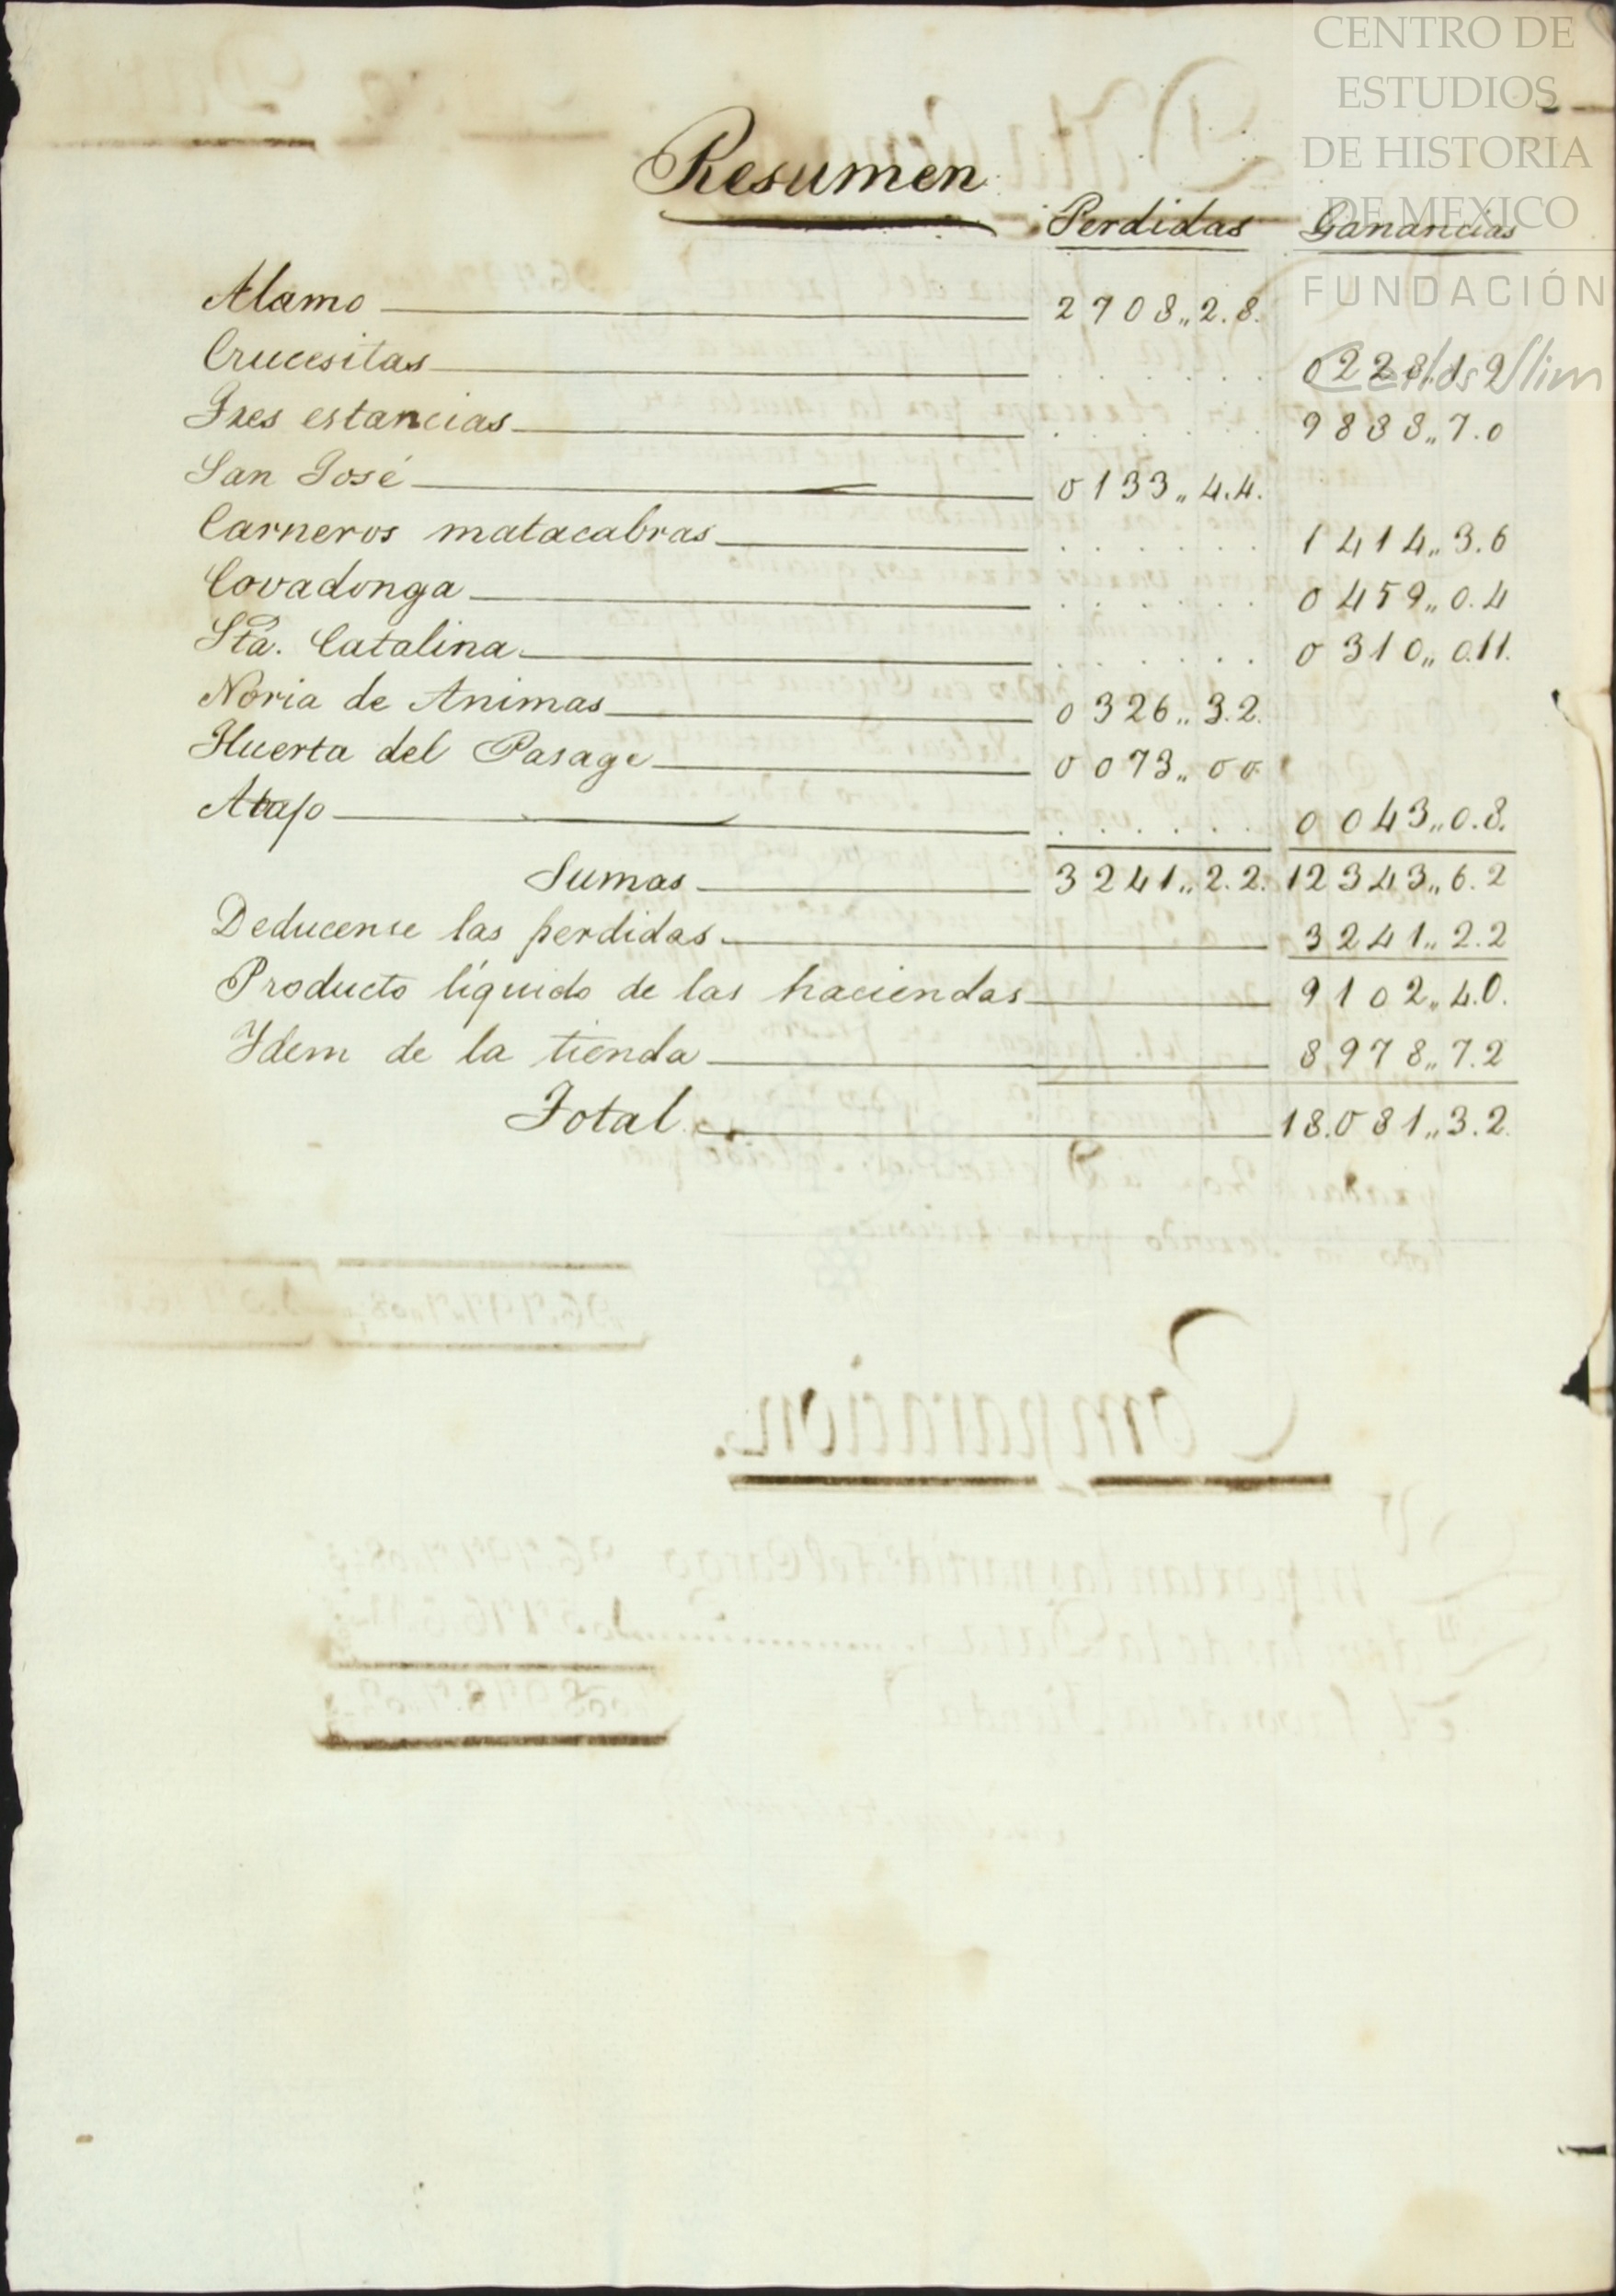 CENTRO DE
ESTUDIOS
DE HISTORIA
DE MEXICO
FUNDACIÓN
Carlos Slim
Resumen
Perdidas Ganancias
Alamo 2708,, 2. 8.
Crucesitas 0228,, 1. 9
Tres estancias 9888,, 7. 0
San José 0133,, 4. 4.
Carneros matacabras 1414,, 3. 6
Covadonga 0459,, 0. 4
Sta. Catalina 0310,, 0.11.
Noria de Animas 0326,, 3. 2.
Huerta del Pasage 0073,, 00
Atajo 0043,, 0. 8.
Sumas 3241,, 2. 2. 12343,, 6. 2
Deducense las perdidas 3241,, 2. 2
Producto líquido de las haciendas 9102,, 4. 0.
Idem de la tienda 8978,, 7. 2
Total 18.081,, 3. 2.